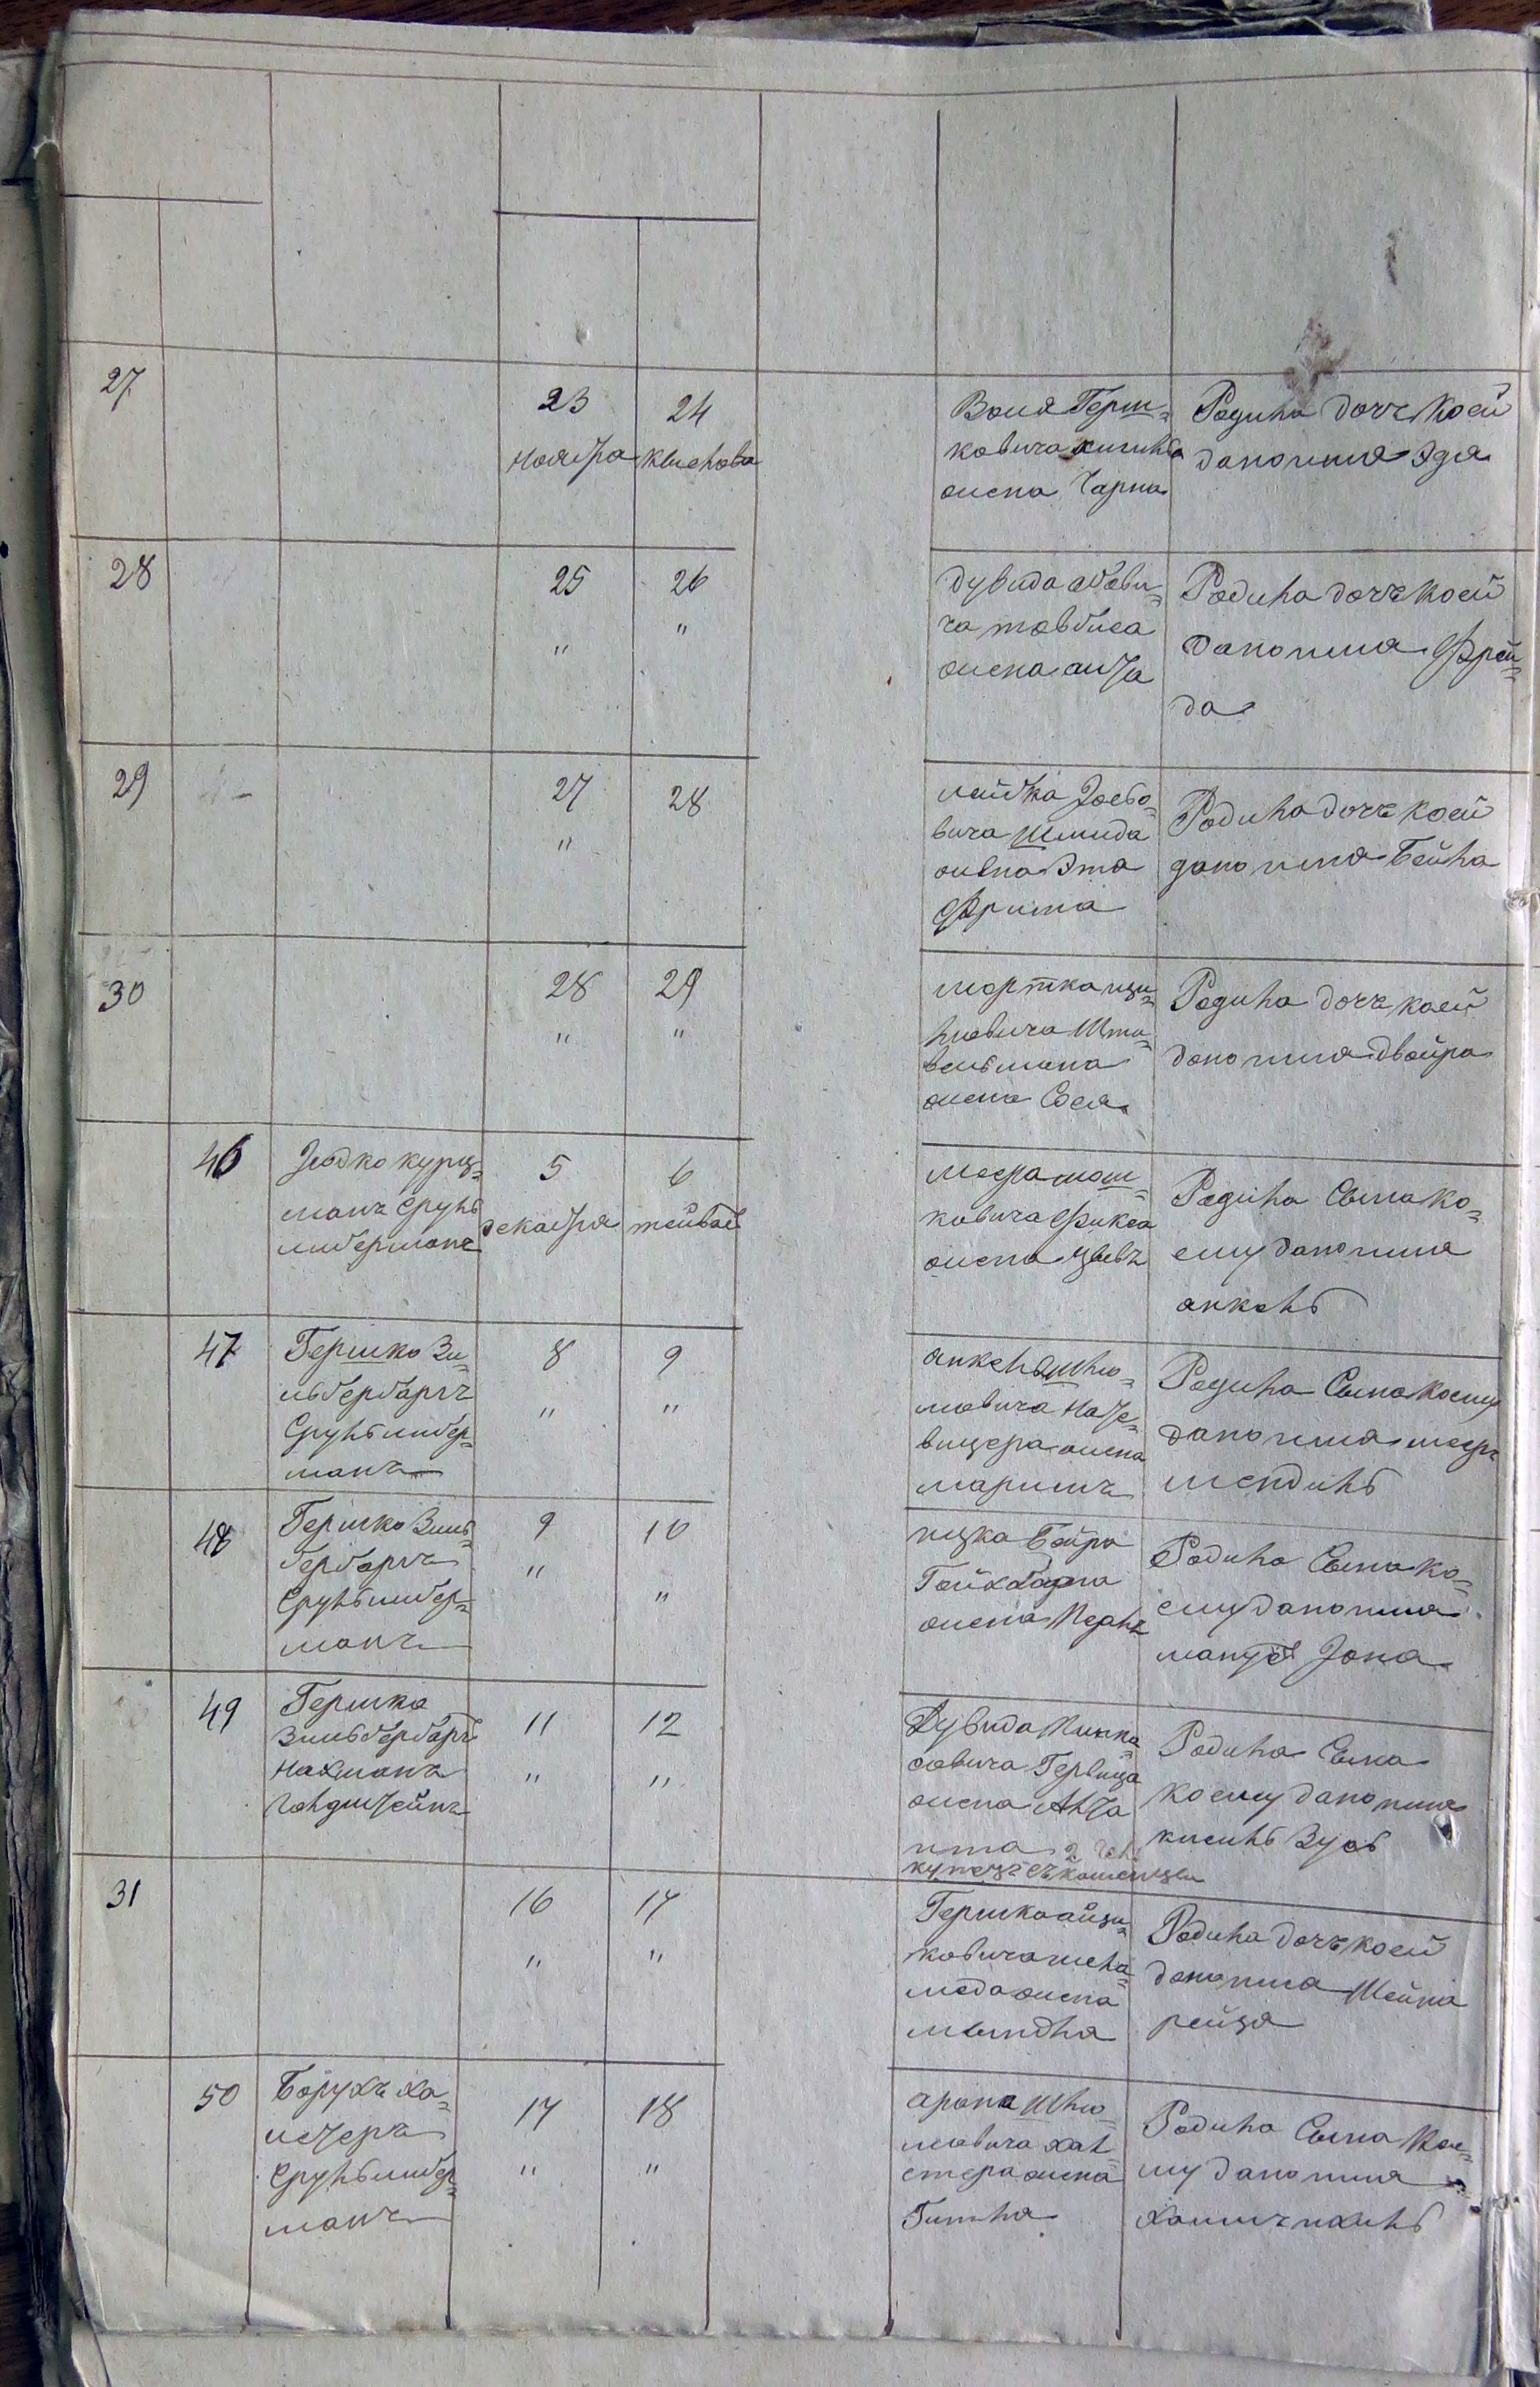 27
23
Ноября
24
кислова
Воля Герш=
ковича
жена Чарна
Родила дочь коей
дано имя Эдя
28
25
"
26
"
Дувида
ча товбиса
жена
Родила дочь коей
дано имя Фрей=
да
29
27
"
28
лейбка Иосьо=
вича Шмида
жена Эта
Фрима
Родила дочь коей
дано имя Бейла
30
28
"
29
"
мортка
Шта=
вельмана
жена Сося
Родила дочь коей
дано имя двойра
46
Юдко курц=
манъ Сруль
либерманъ
5
декабря
6
тейвас
меера мош=
ковича Фикса
жена
Родила Сына ко=
ему дано имя
анкель
47
Гершко Зи=
льбербаргъ
Сруль либер=
манъ
8
"
9
"
анкель Шлю=
мовича
вицера жена
маримъ
Родила Сына коему
дано имя меер
мендиль
48
Гершко Зиль=
бербаргъ
Сруль либер=
манъ
9
"
10
"
ицка Бейра
жена Перль
Родила Сына ко=
ему дано имя
манус Иона
49
Гершко
Зильбербаргъ
Нахманъ
Гольдштейнъ
11
"
12
"
Дувида Пинка=
совича Гервица
жена
ита 2 Гел
купецъ
Родила Сына
коему дано имя
кисиль Зусь
31
16
"
17
"
Гершко айзи=
ковича
меда жена
миндля
Родила дочь коей
дано имя Шейна
рейзя
50
Борухъ ха=
Сруль либер=
манъ
17
"
18
"
арона Шлю=
мовича
стера жена
Гитля
Родила Сына кое=
му дано имя
хаимъ ихиль